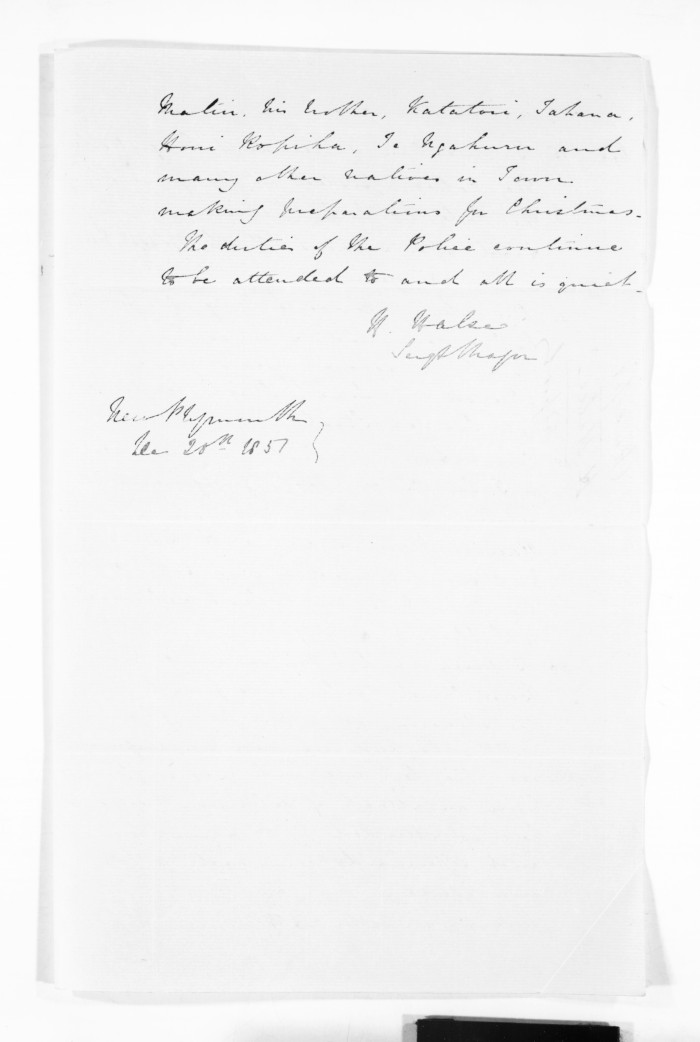 his Mother, Katatori, Tahana,
Honi Ropiha, Te Ngahuru and
many other natives in Town
making preparations for Christmas.
The duties of the Police continue
to be attended to and all is quiet.
H. Halse
Sergt Major
New Plymouth
Dec 20th 1851